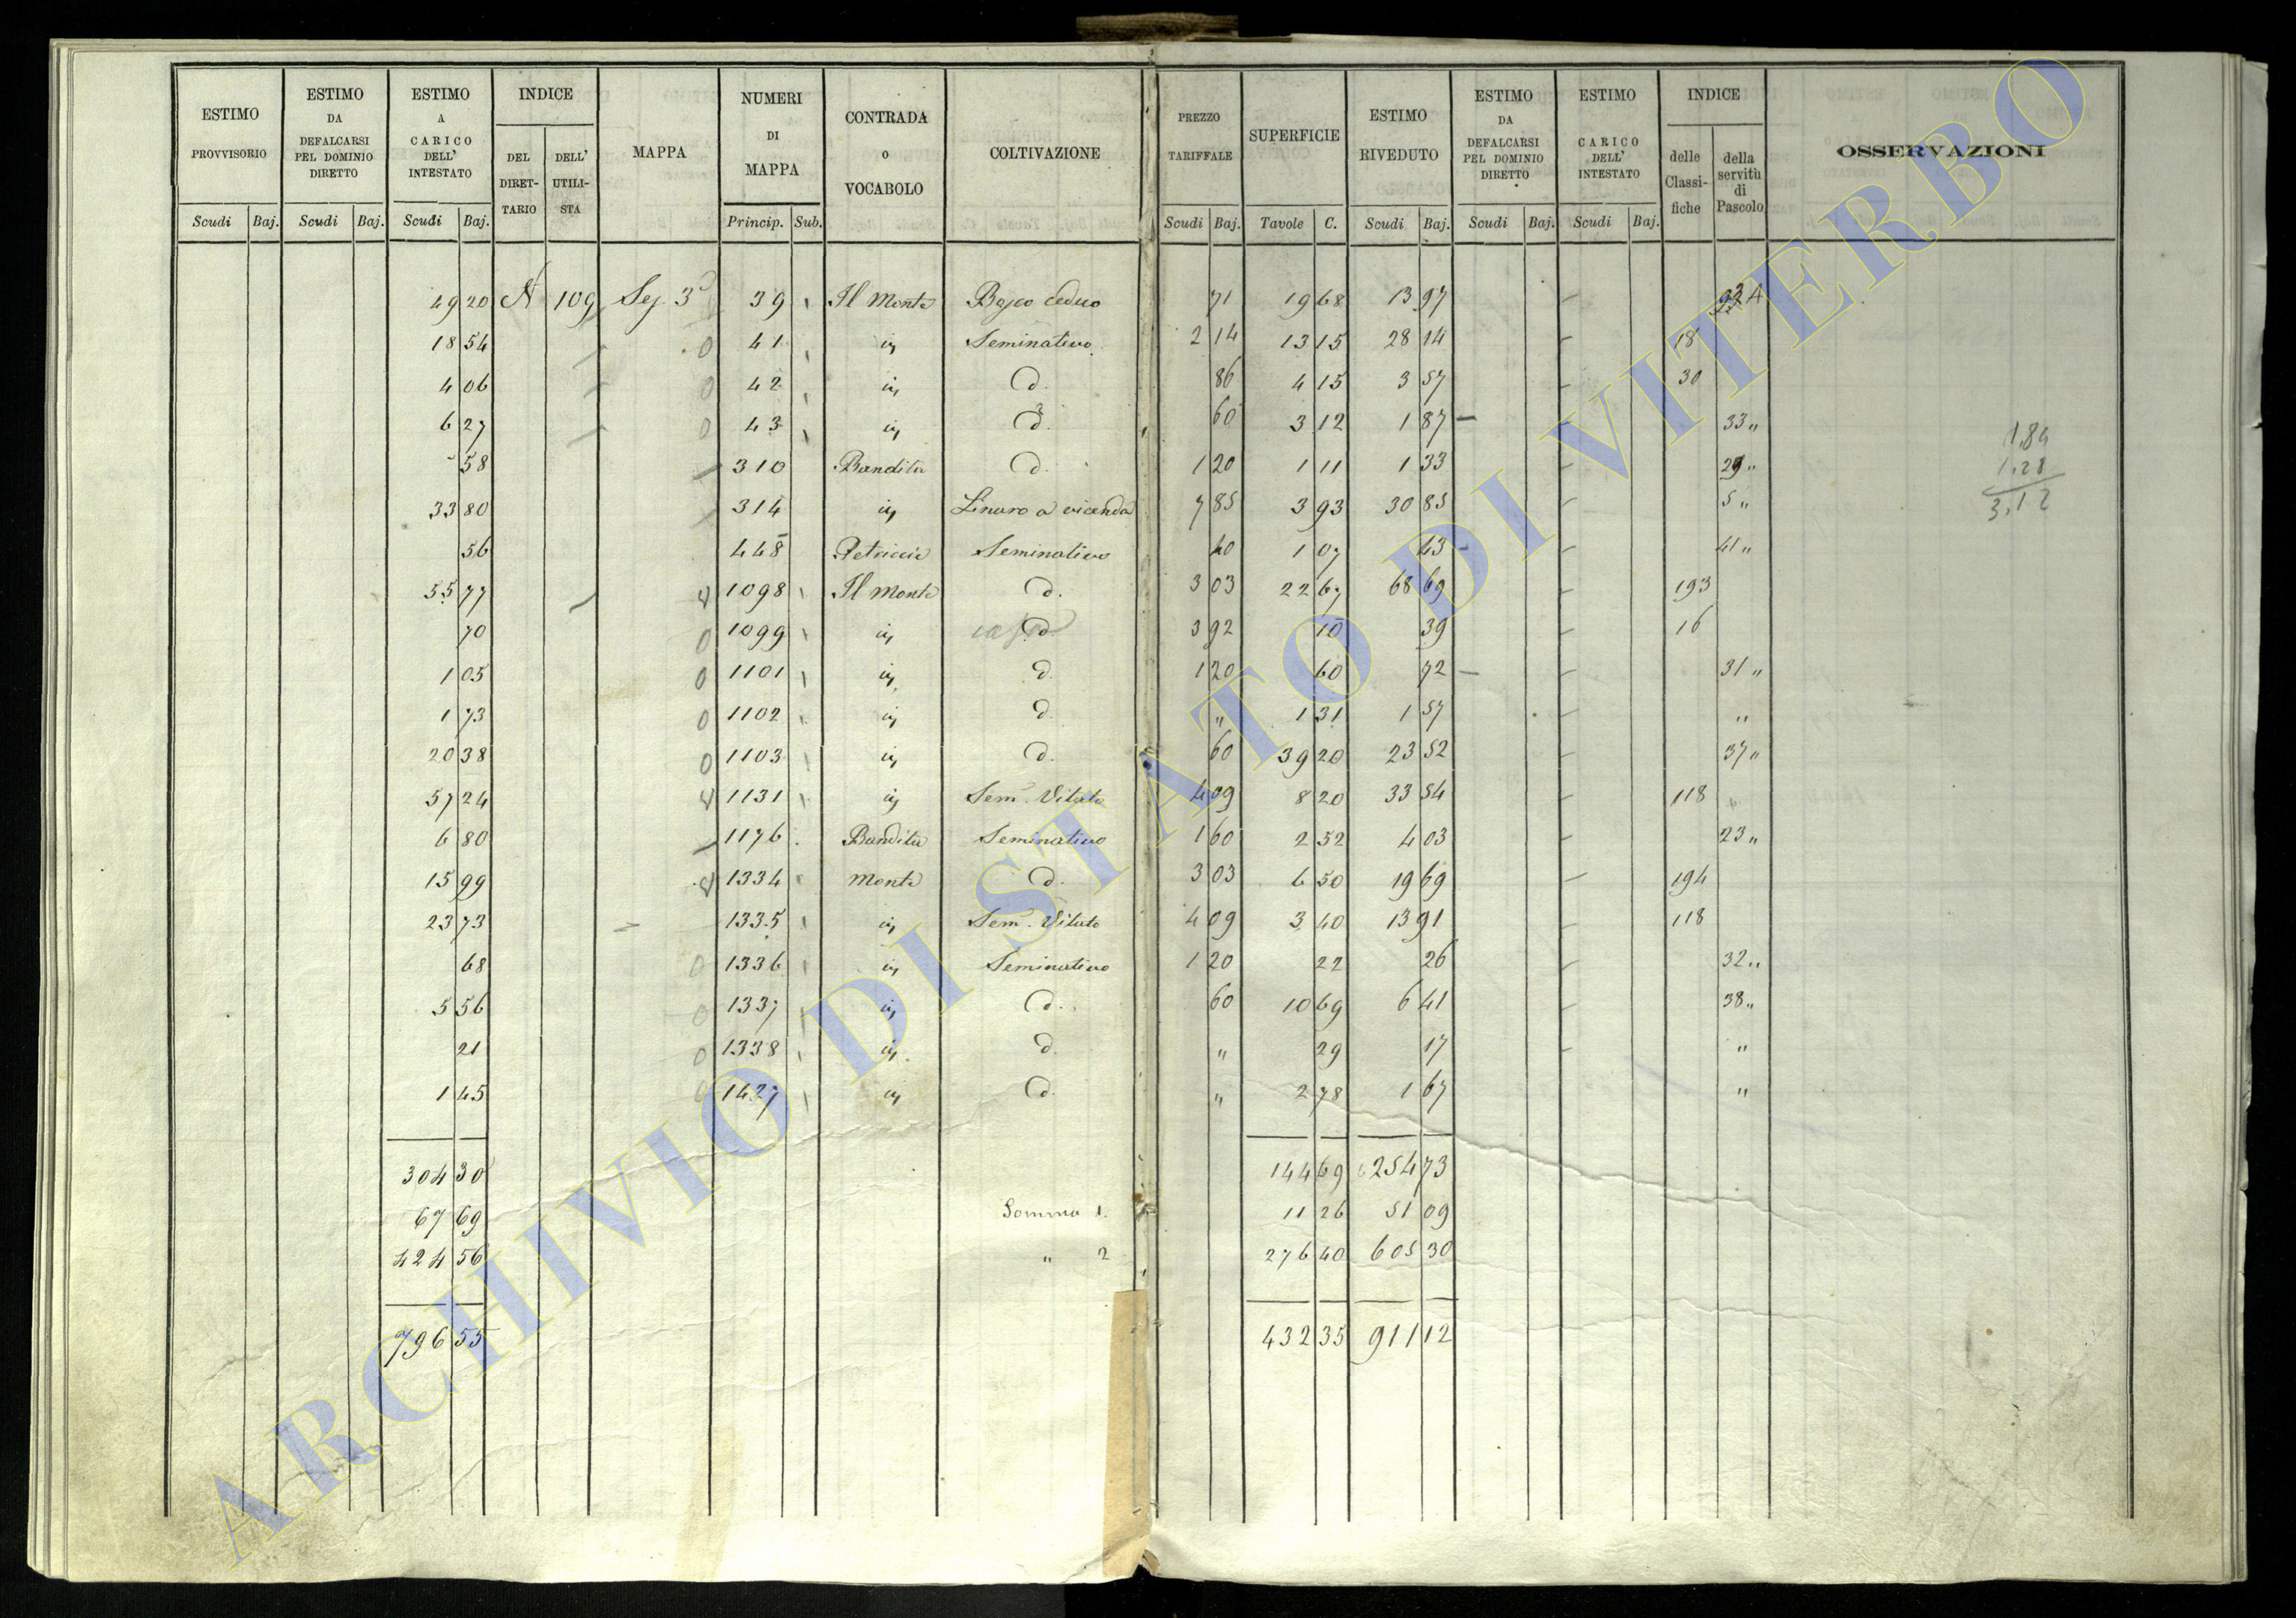 ESTIMO PROVVISORIO | ESTIMO DA DEFALCARSI PEL DOMINIO DIRETTO | ESTIMO A CARICO DELL' INTESTATO | INDICE DEL DIRET-TARIO | DELL' UTILI-STA | MAPPA | NUMERI DI MAPPA | CONTRADA o VOCABOLO | COLTIVAZIONE | PREZZO TARIFFALE | SUPERFICIE | ESTIMO RIVEDUTO | ESTIMO DA DEFALCARSI PEL DOMINIO DIRETTO | ESTIMO A CARICO DELL' INTESTATO | INDICE delle Classi-fiche | della servitù di Pascolo | OSSERVAZIONI
Scudi Baj. | Scudi Baj. | Scudi Baj. | Princip. Sub. | Scudi Baj. | Tavole C. | Scudi Baj. | Scudi Baj. | Scudi Baj.
49 20 A 109 Sez. 3ª 39 Il Monte Bosco ceduo 71 19 68 13 97 A
18 54 0 41 " Seminativo 2 14 13 15 28 14 18
4 06 0 42 " d. 86 4 15 3 57 30
6 27 0 43 " d. 60 3 12 1 87 — 33 "
58 310 Bandita d. 1 20 1 11 1 33 29 "
33 80 314 " Linaro a vicenda 7 85 3 93 30 85 5 "
56 448 Petriccie Seminativo 40 1 07 43 41 "
55 77 1098 Il Monte d. 3 03 22 67 68 69 193
70 0 1099 " d. 3 92 10 39 16
1 05 0 1101 " d. 1 20 60 72 — 31 "
1 73 0 1102 " d. " 1 31 1 57 "
20 38 0 1103 " d. 60 39 20 23 52 37 "
57 24 1131 " Sem. Vitato 4 09 8 20 33 54 118
6 80 1176 Bandita Seminativo 1 60 2 52 4 03 23 "
15 99 1334 Monte d. 3 03 6 50 19 69 194
23 73 1335 " Sem. Vitato 4 09 3 40 13 91 118
68 0 1336 " Seminativo 1 20 22 26 32 "
5 56 0 1337 " d. 60 10 69 6 41 38 "
21 0 1338 " d. " 29 17 "
1 45 0 1427 " d. " 2 78 1 67 "
304 30 144 69 254 73
67 69 Somma 1. 11 26 51 09
424 56 " 2 276 40 605 30
796 55 432 35 911 12
1,84
1.28
3,12
ARCHIVIO DI STATO DI VITERBO